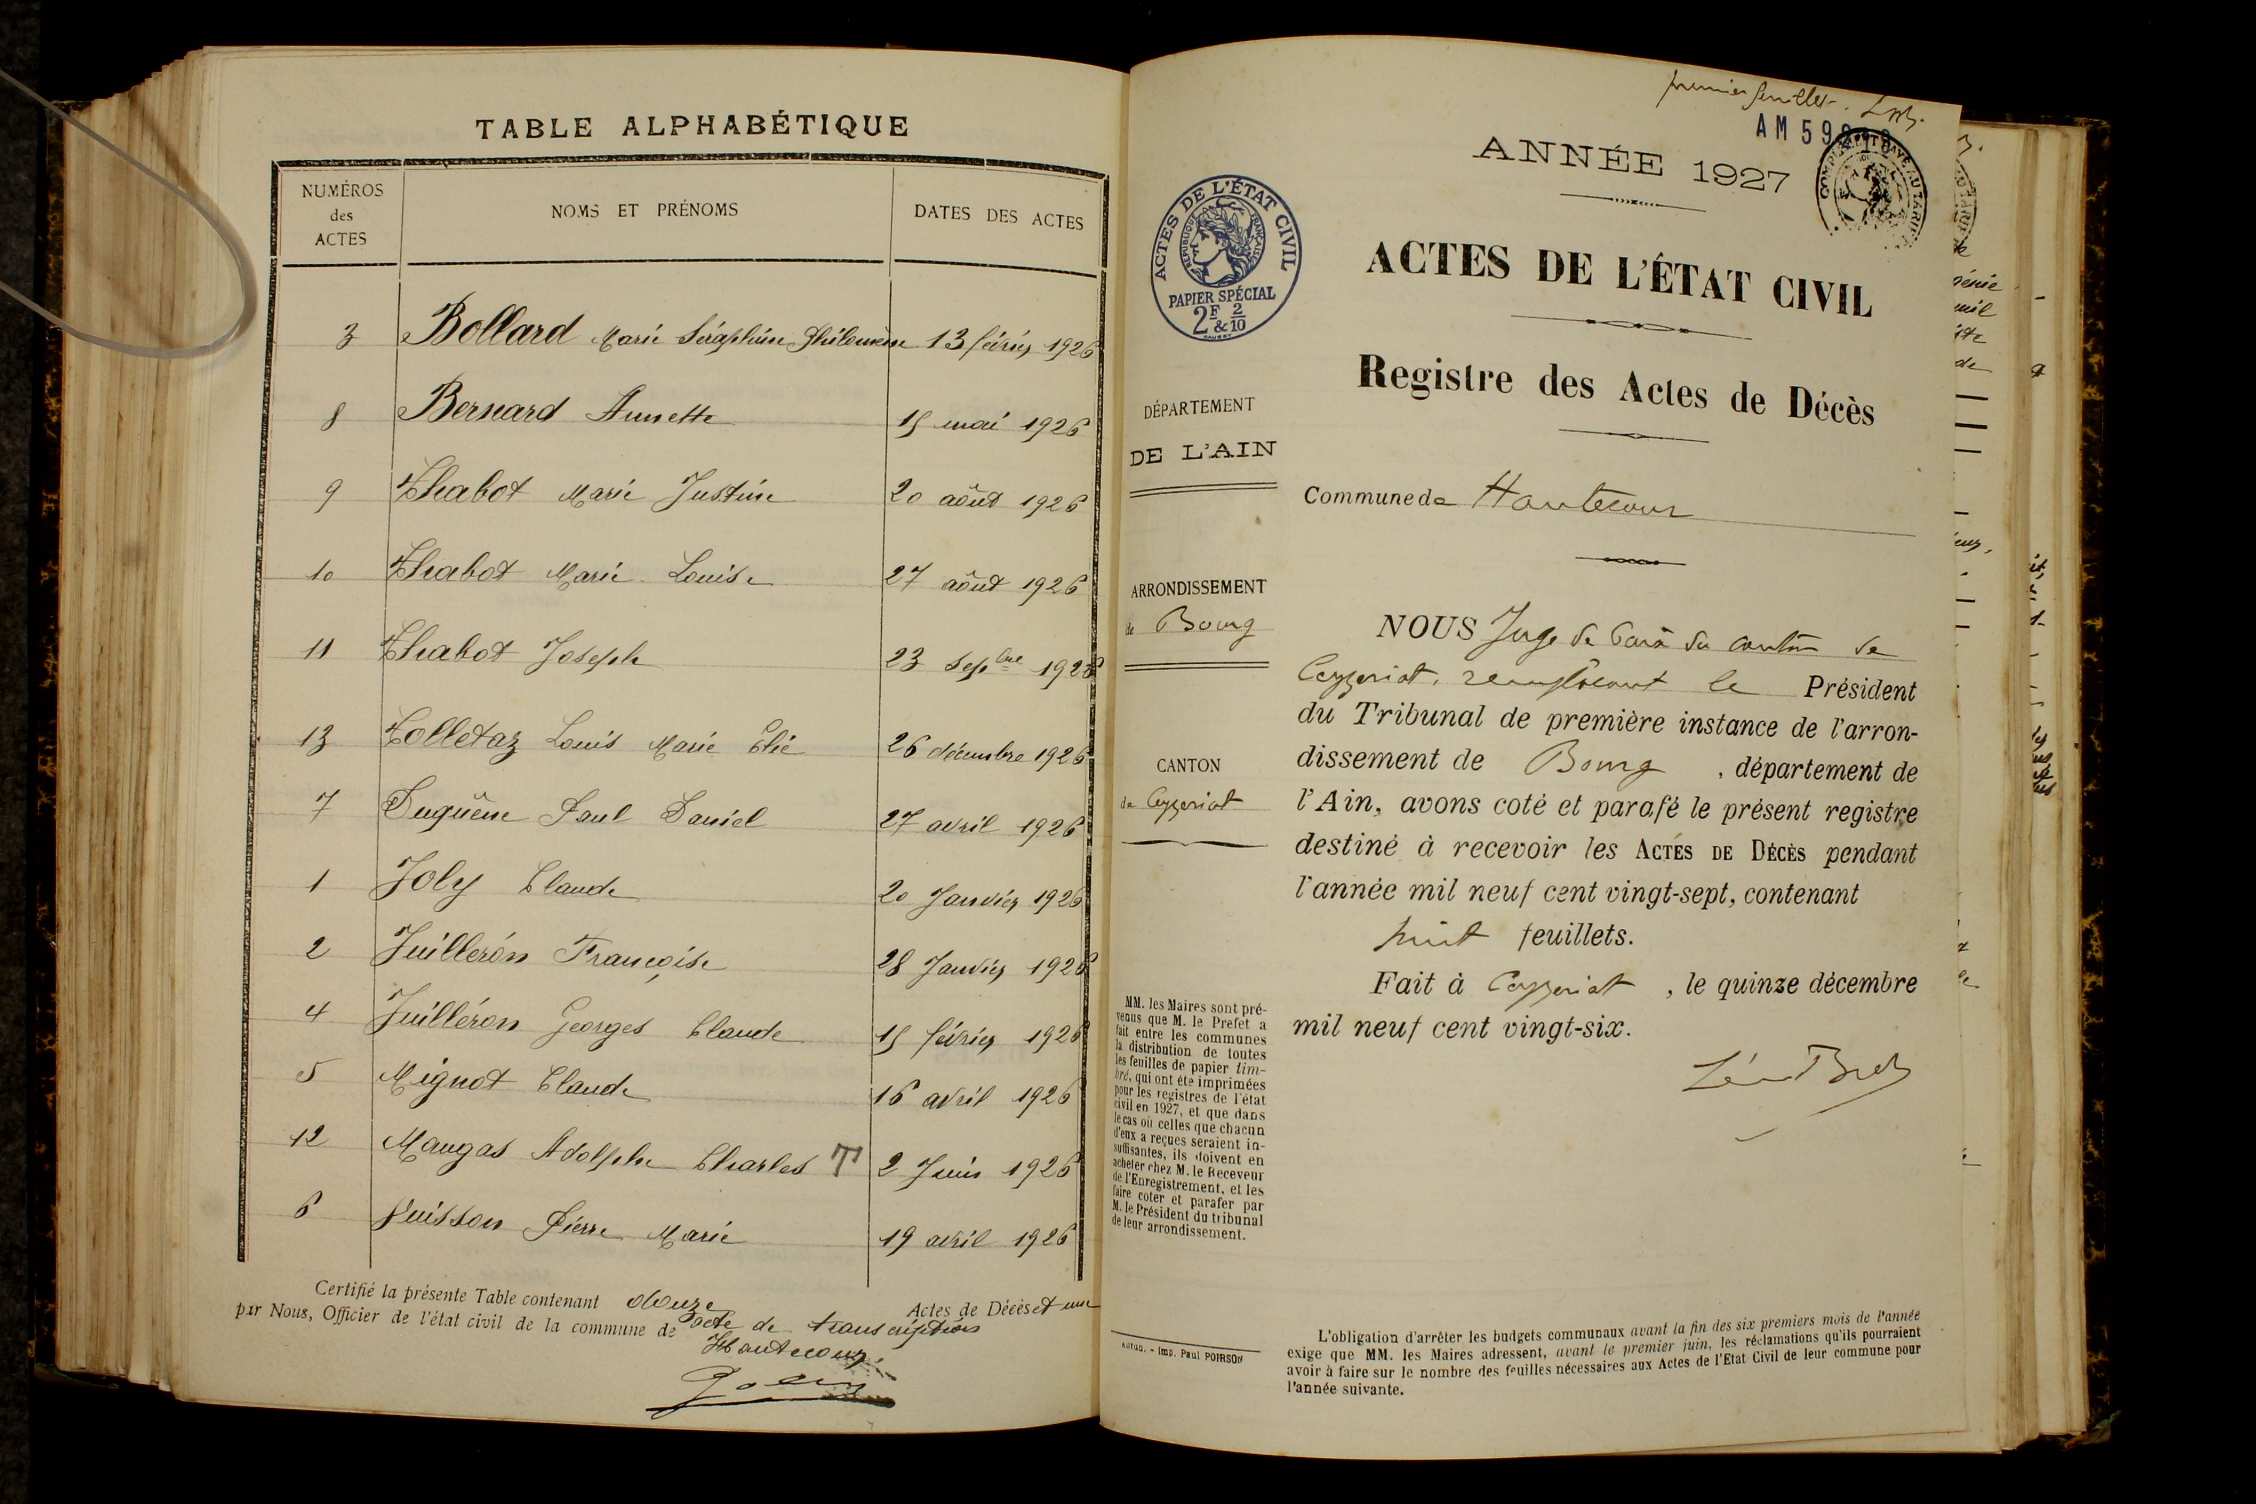 TABLE ALPHABÉTIQUE
NUMÉROS des ACTES
NOMS ET PRÉNOMS
DATES DES ACTES
3 Bollard Marie Séraphine Philomène 13 février 1926
8 Bernard Annette 15 mai 1926
9 Chabot Marie Justine 20 août 1926
10 Chabot Marie Louise 27 août 1926
11 Chabot Joseph 23 sepbre 1926
13 Colletaz Louis Marie Elie 26 décembre 1926
7 Duguène Paul Daniel 27 avril 1926
1 Joly Claude 20 Janvier 1926
2 Juilléron Françoise 28 Janvier 1926
4 Juilléron Georges Claude 15 février 1926
5 Mignot Claude 16 avril 1926
12 Maugas Adolphe Charles T 2 Juin 1926
6 Puisson Pierre Marie 19 avril 1926
Certifié la présente Table contenant douze Actes de Décès et un
acte de transcription
par Nous, Officier de l'état civil de la commune de
Hautecour.
premier feuillet.
AM 59
ANNÉE 1927
ACTES DE L'ÉTAT CIVIL
RÉPUBLIQUE FRANÇAISE
PAPIER SPÉCIAL
2F 2
& 10
ACTES DE L'ÉTAT CIVIL
Registre des Actes de Décès
DÉPARTEMENT
DE L'AIN
Commune de Hautecour
ARRONDISSEMENT
de Bourg
CANTON
de Ceyzeriat
NOUS Juge de Paix du canton de
Ceyzeriat, remplaçant le Président
du Tribunal de première instance de l'arron-
dissement de Bourg, département de
l'Ain, avons coté et parafé le présent registre
destiné à recevoir les ACTES DE DÉCÈS pendant
l'année mil neuf cent vingt-sept, contenant
huit feuillets.
Fait à Ceyzeriat, le quinze décembre
mil neuf cent vingt-six.
MM. les Maires sont pré-
venus que M. le Prefet a
fait entre les communes
la distribution de toutes
les feuilles de papier tim-
bré, qui ont été imprimées
pour les registres de l'état
civil en 1927, et que dans
le cas où celles que chacun
d'eux a reçues seraient in-
suffisantes, ils doivent en
acheter chez M. le Receveur
de l'Enregistrement, et les
faire coter et parafer par
M. le Président du tribunal
de leur arrondissement.
Imp. Paul POIRSON
L'obligation d'arrêter les budgets communaux avant la fin des six premiers mois de l'année
exige que MM. les Maires adressent, avant le premier juin, les réclamations qu'ils pourraient
avoir à faire sur le nombre des feuilles nécessaires aux Actes de l'Etat Civil de leur commune pour
l'année suivante.